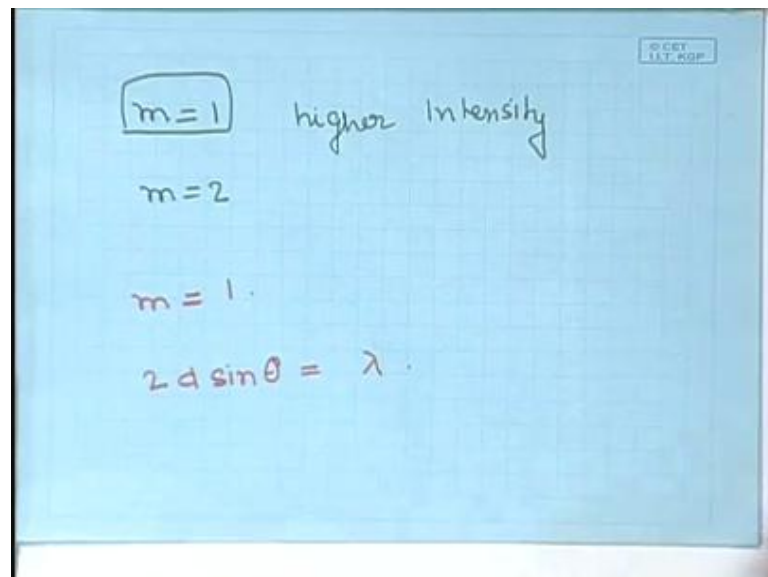 © CET
I.I.T. KGP
m = 1 higher Intensity
m = 2
m = 1.
2 d sin θ = λ.